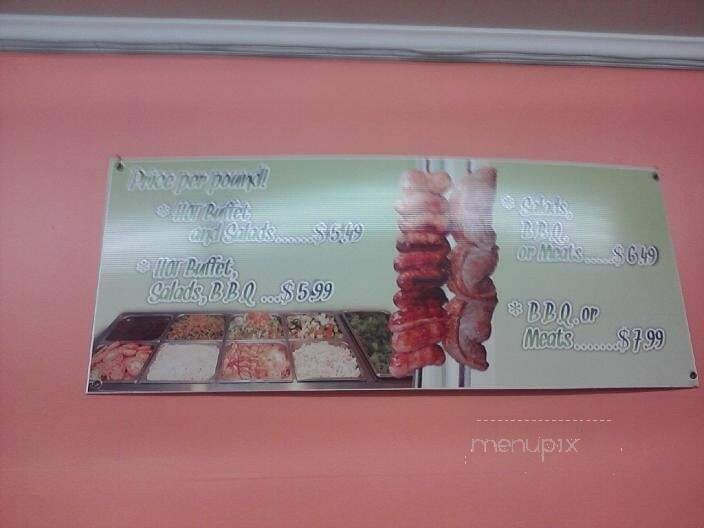 Price per pound!
* HOT Buffet,
and Salads.......$5,49
* HOT Buffet,
Salads, B B Q ...$ 5.99
* Salads,
B B Q,
or Meats.....$ 6,49
* B B Q. or
Meats........$ 7.99
menupix